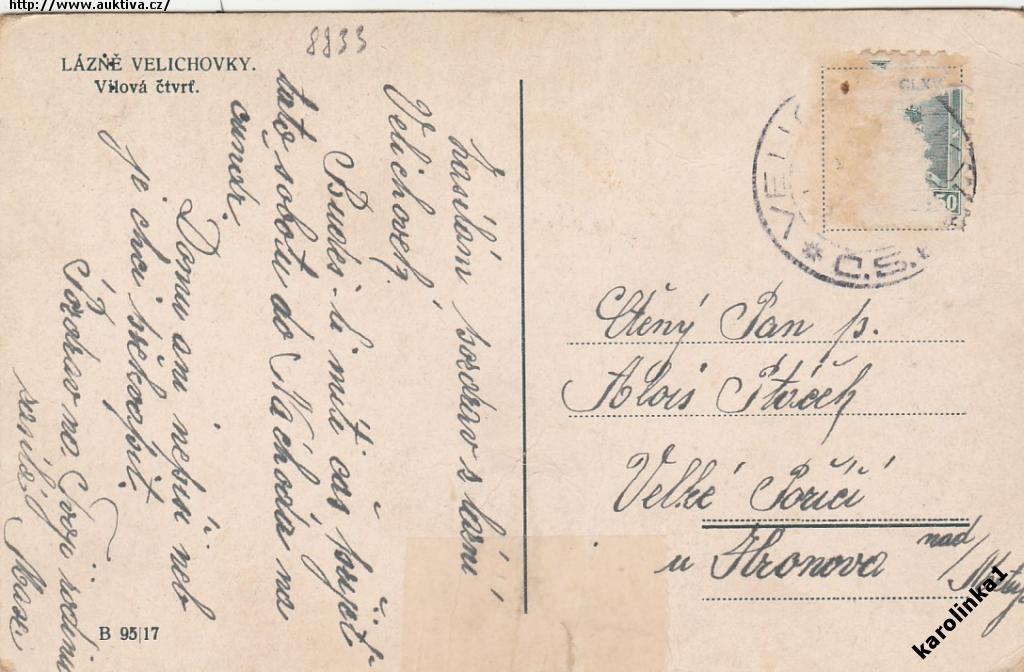 http://www.auktiva.cz/
8833
LÁZNĚ VELICHOVKY.
Vilová čtvrť.
zasílám pozdrav s lázní
Velichovek
Budeš-li míti čas přijeť
tuto sobotu do Náchoda na
Domu ani nepiš neb
je chci překvapit.
Pozdrav na Tvoji rodinu
VELI
* Č.S. *
50
Ctěný Pan p.
Alois Ptáček
Velké Poříčí
u Hronova nad/
B 95|17
karolinka1